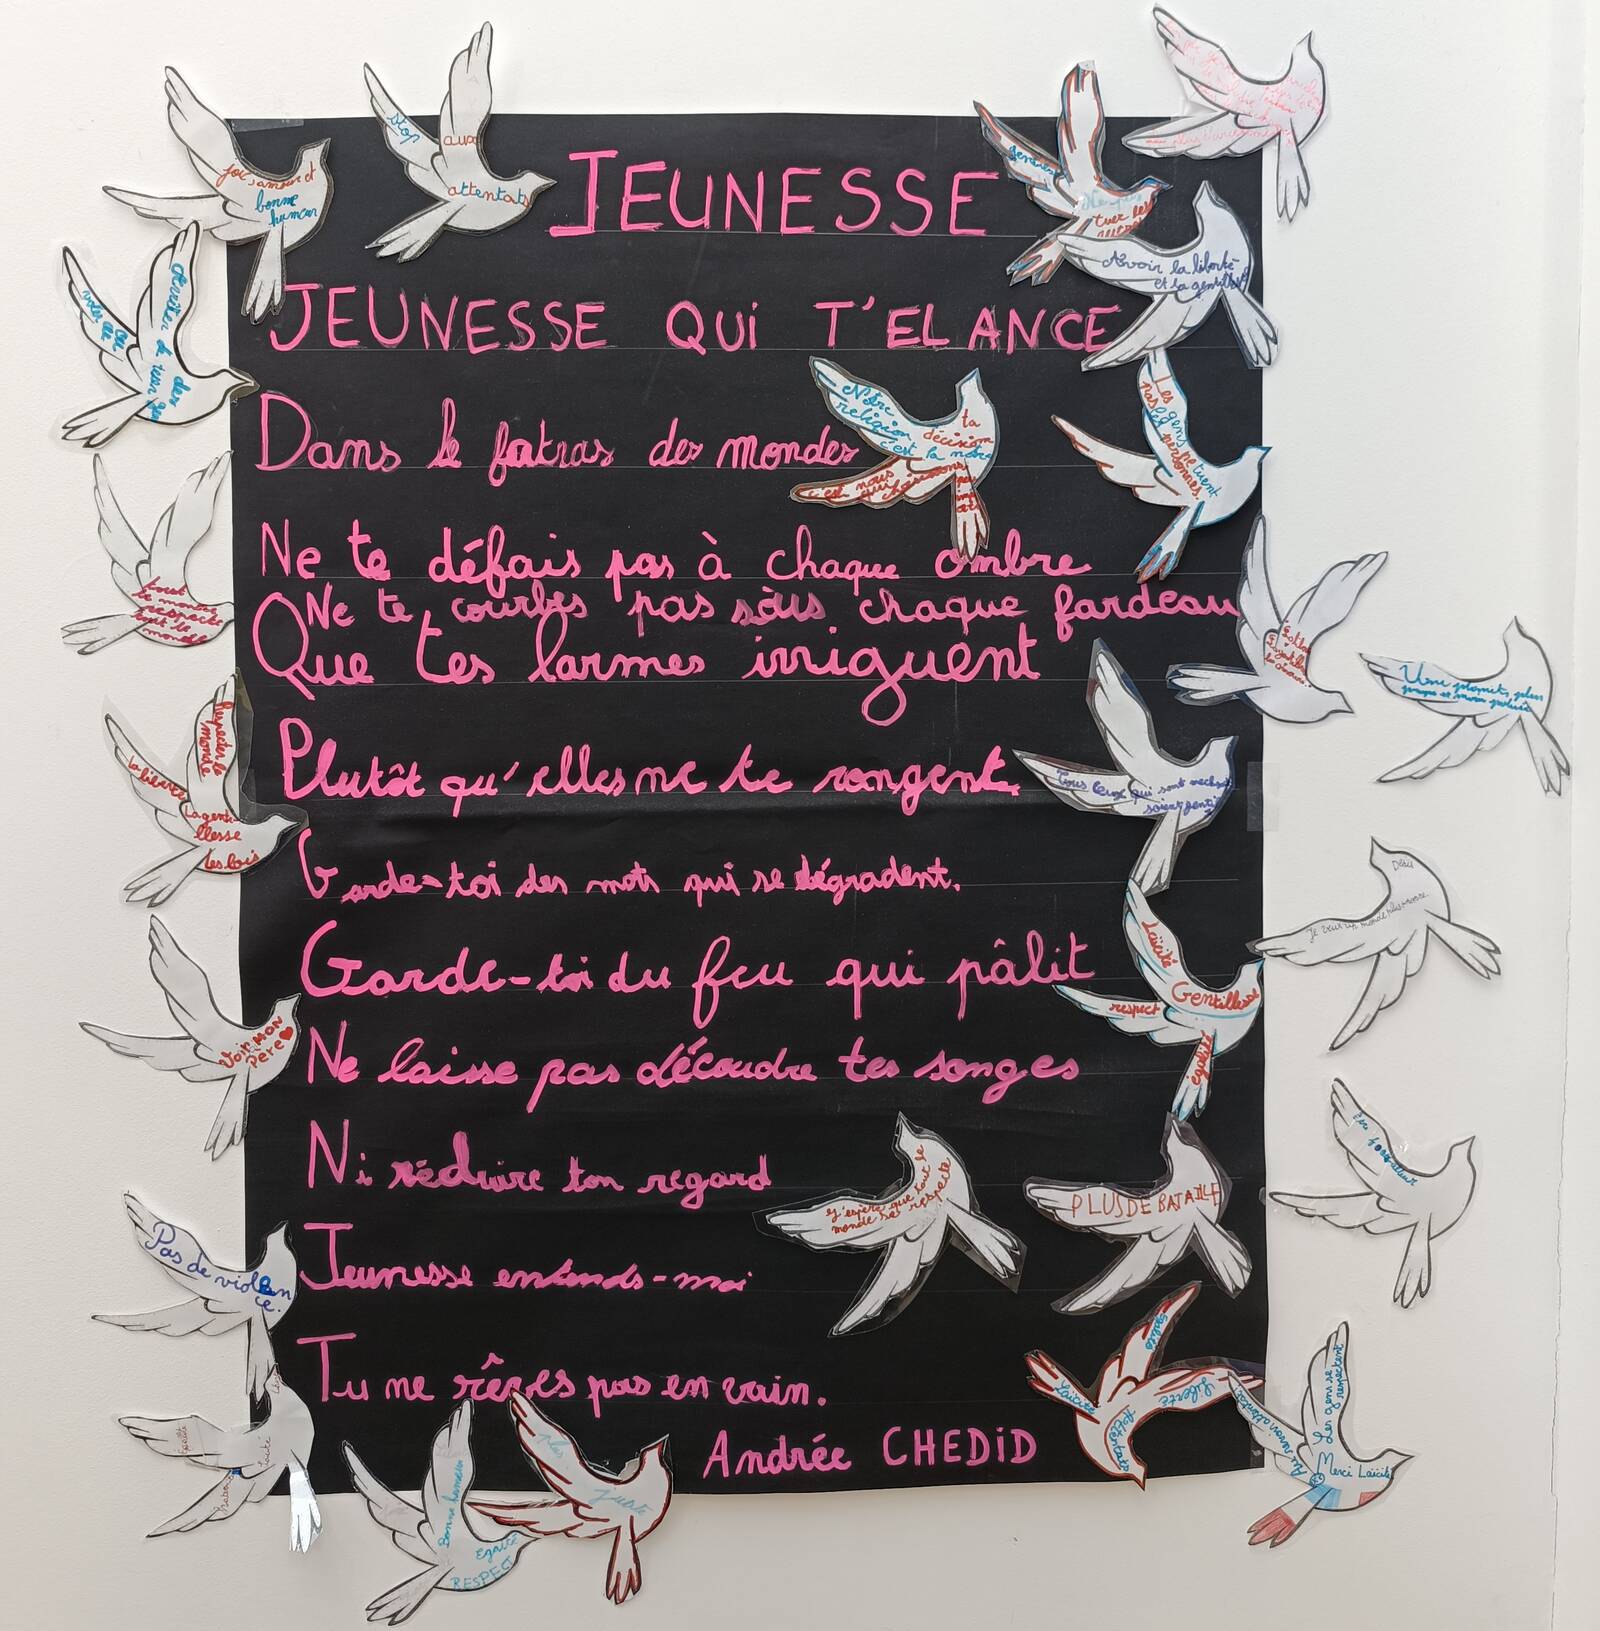 JEUNESSE
JEUNESSE QUi T'ELANCE
Dans le fatras des mondes
Ne te défais pas à chaque ombre
Ne te courbes pas sous chaque fardeau
Que tes larmes irriguent
Plutôt qu'elles ne te rongent
Garde-toi des mots qui se dégradent.
Garde-toi du feu qui pâlit
Ne laisse pas découdre tes songes
Ni réduire ton regard
Jeunesse entends-moi
Tu ne rêves pas en vain.
Andrée CHEDiD
joie, amour et
bonne
humeur
stop
aux
attentats
Avoir la liberté
et la gentillesse
Notre
religion
c'est la nôtre
ta
décision
c'est nous
qui
choisissons
Les gens
pas
personnes.
tout le monde
respecte
tout le
monde
Respecter le
monde
la liberté
La genti
llesse
les lois
Une planète plus
propre et moins polluée
Tous ceux qui sont méchants
soient gentils
Je veux un monde plus
Laïcité
Gentillesse
respect
égalité
Voir MON
père
J'espère que tout le
monde se respecte
PLUS DE BATAILLE
Pas de violen
ce.
Laïcité
Liberté
Attentat
Les gens se respectent
Au revoir attentat
Merci Laïcité
Bonne humeur
Egalité
RESPECT
plus
juste